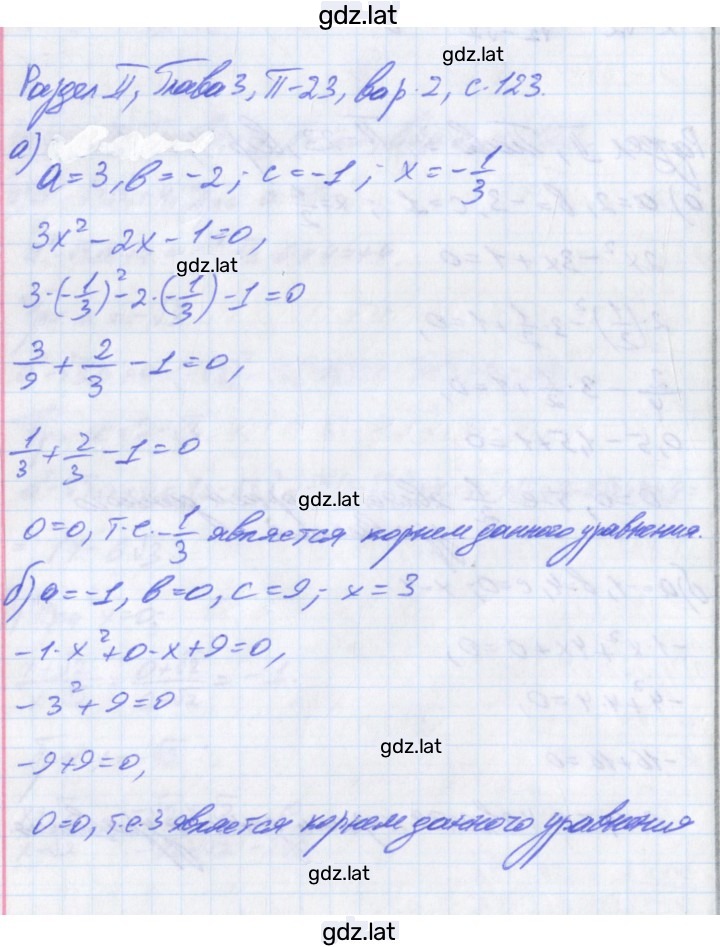 gdz.lat
gdz.lat
Раздел II, Глава 3, П-23, вар. 2, с. 123.
а)
a = 3, в = -2; c = -1; x = -1/3
3x² - 2x - 1 = 0,
gdz.lat
3·(-1/3)² - 2·(-1/3) - 1 = 0
3/9 + 2/3 - 1 = 0,
1/3 + 2/3 - 1 = 0
gdz.lat
0 = 0, т.е. -1/3 является корнем данного уравнения.
б) a = -1, в = 0, c = 9; x = 3
-1·x² + 0·x + 9 = 0,
-3² + 9 = 0
gdz.lat
-9 + 9 = 0,
0 = 0, т.е. 3 является корнем данного уравнения
gdz.lat
gdz.lat